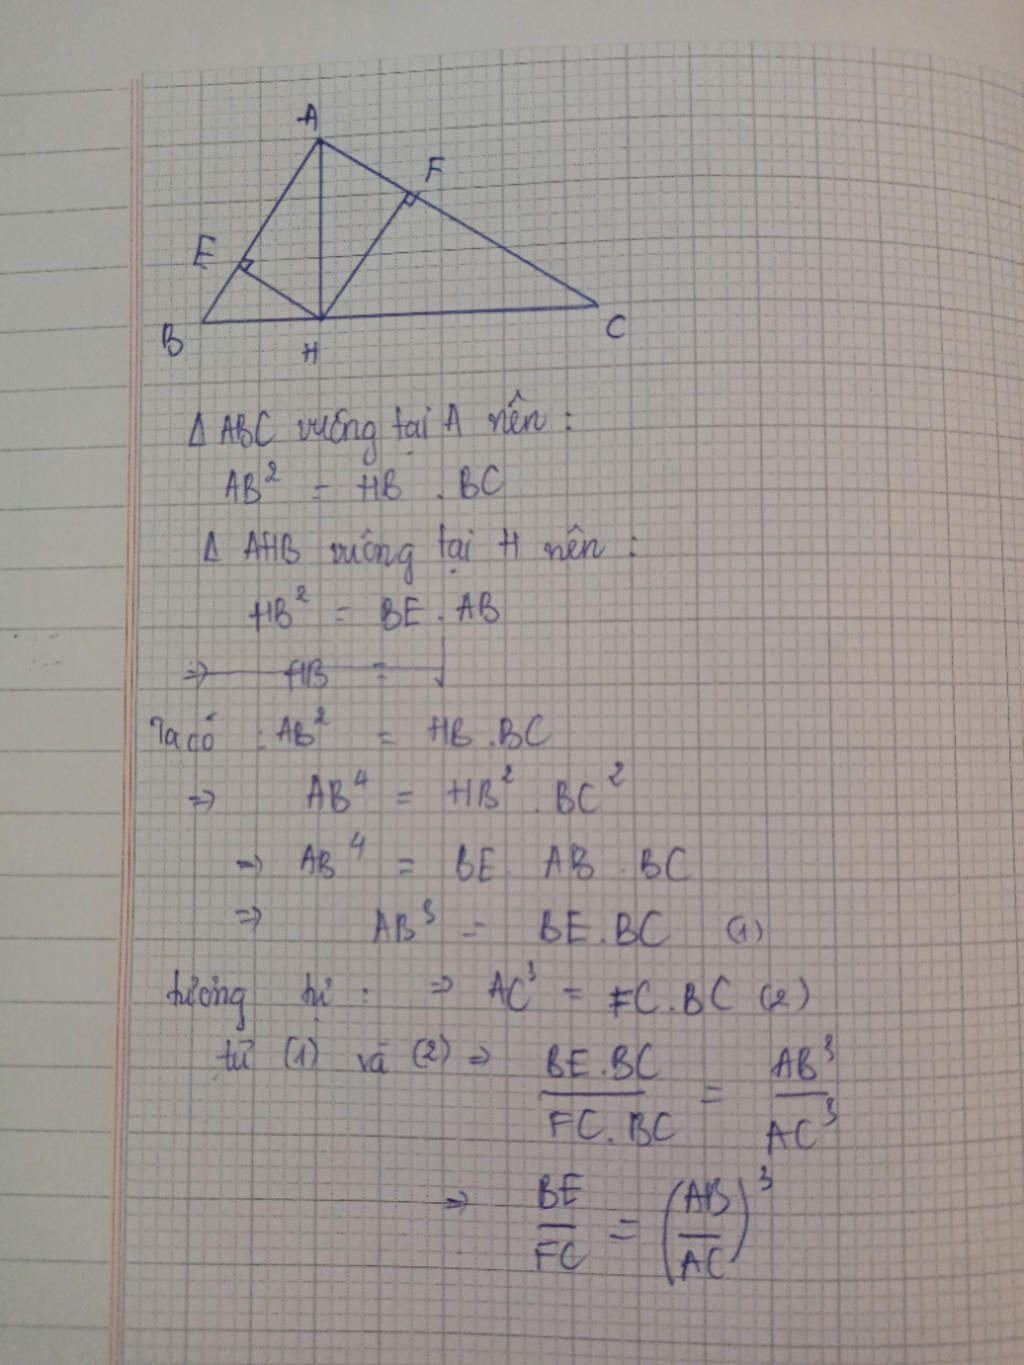 A
F
E
B
H
C
Δ ABC vuông tại A nên :
AB² = HB . BC
Δ AHB vuông tại H nên :
HB² = BE . AB
⇒ HB = √
Ta có : AB² = HB . BC
⇒ AB⁴ = HB² . BC²
⇒ AB⁴ = BE . AB . BC
⇒ AB³ = BE . BC (1)
tương tự : ⇒ AC³ = FC . BC (2)
từ (1) và (2) ⇒ BE.BC / FC.BC = AB³ / AC³
⇒ BE / FC = (AB / AC)³